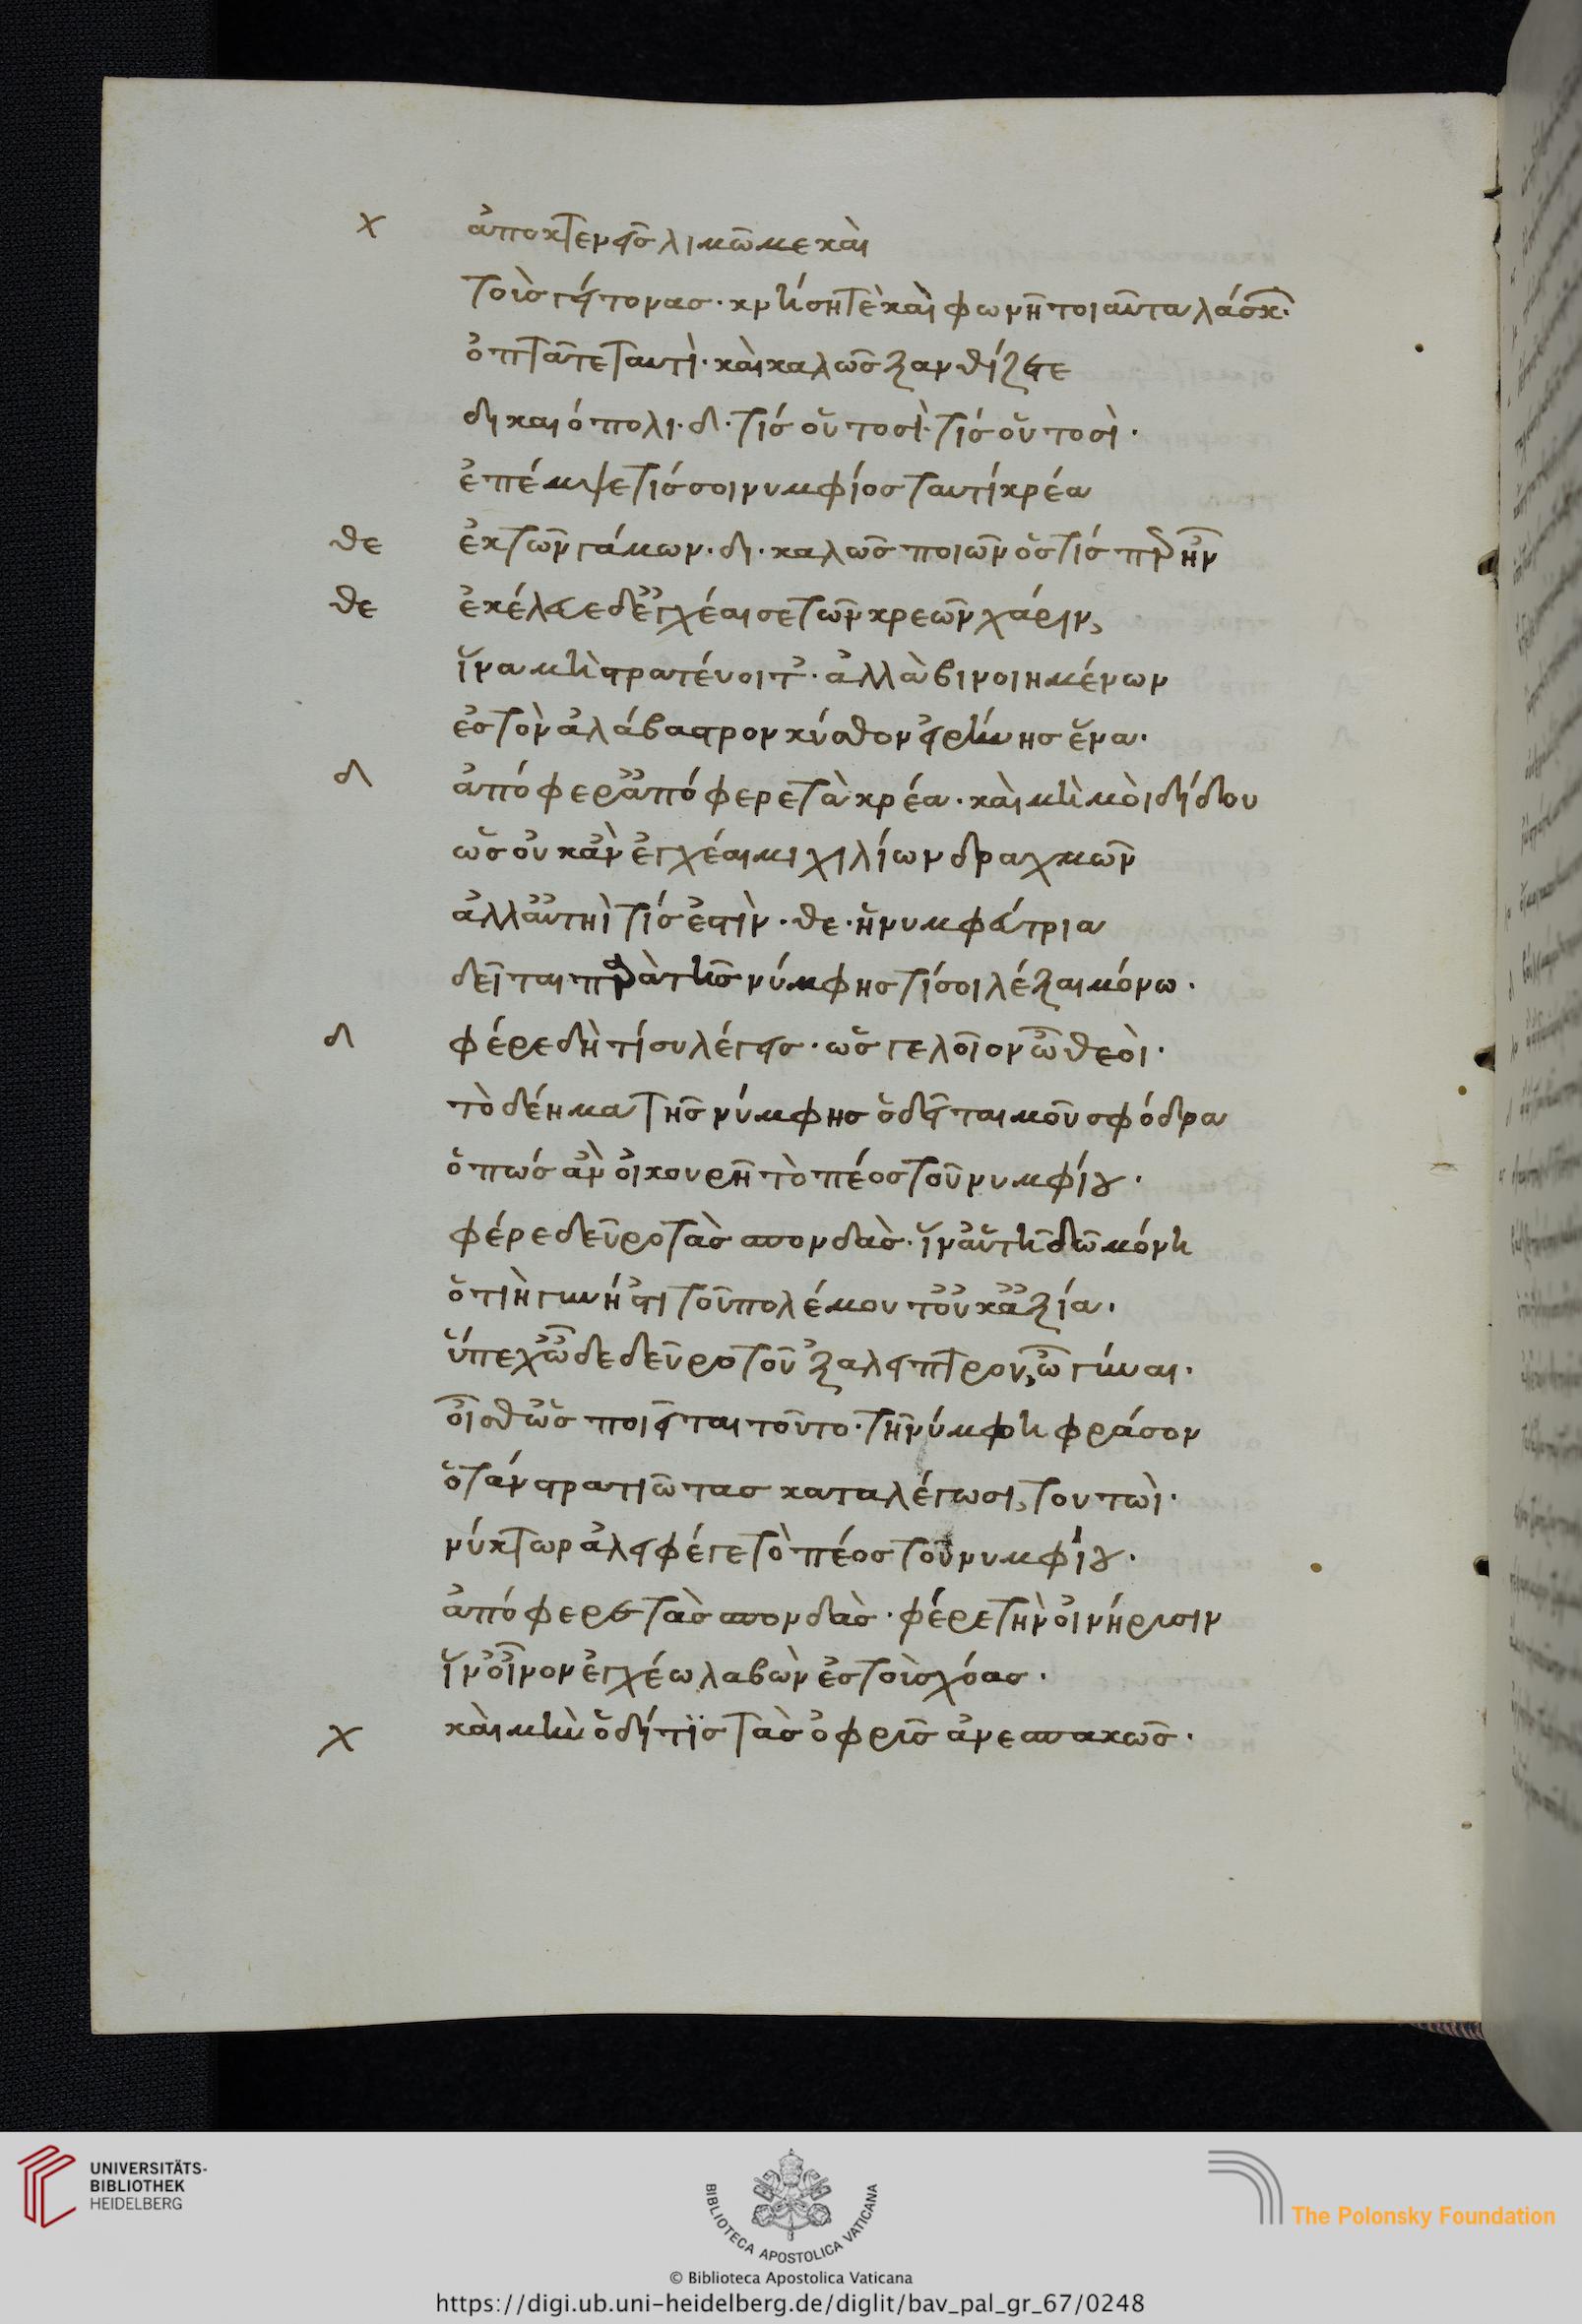 χ ἀποκτενεῖς λιμῶ με καὶ
τοὺς γείτονας· κνήση τὲ καὶ φωνῆ τοιαῦτα λάσκ·
ὀπτᾶτε ταυτὶ· καὶ καλῶς ξανθίζετε
δικαιόπολι· δ· τίς οὗτοσὶ· τίς οὗτοσὶ·
ἐπέμψε τίς σοι νυμφίος ταυτὶ κρέα
θε ἐκ τῶν γάμων· δι· καλῶς ποιῶν ὅστίς περ ἦν
θε ἐκέλευε δ' ἐγχέαι σε τῶν κρεῶν χάριν,
ἵνα μὴ στρατεύοιτ'· ἀλλὰ βινοιημένων
ἐς τὸν ἀλάβαστρον κύαθον εἰρήνης ἕνα·
δ ἀπόφερ' ἀπόφερε τὰ κρέα· καὶ μὴ μοὶ δίδου
ὡς οὐκ ἂν ἐγχέαιμι χιλίων δραχμῶν
ἀλλ' αὑτηὶ τίς ἐστὶν· θε· ἡ νυμφεύτρια
δεῖται παρὰ τῆς νύμφης τί σοι λέξαι μόνω·
δ φέρε δὴ τί συ λέγεις· ὡς γελοῖον ὦ θεοὶ·
τὸ δέημα τῆς νύμφης ὃ δεῖται μοῦ σφόδρα
ὅπως ἂν οἰκουρῆ τὸ πέος τοῦ νυμφίου·
φέρε δεῦρο τὰς σπονδὰς· ἵν' αὐτῆ δῶ μόνη
ὁτιὴ γυνή 'στι τοῦ πολέμου τ' οὐκ ἀξία·
ὕπεχ' ὧδε δεῦρο τοὐξαλειπτρον, ὦ γύναι·
οἶσθ' ὡς ποιεῖται τοῦτο· τῆ νύμφη φράσον
ὅτάν στρατιώτας καταλέγωσι, τουτωὶ·
νύκτωρ ἀλειφέτε τὸ πέος τοῦ νυμφίου·
ἀπόφερε τὰς σπονδὰς· φέρε τὴν οἰνήρυσιν
ἵν' οἶνον ἐγχέω λαβὼν ἐς τοὺς χόας·
χ καὶ μὴν ὁδί τϊς τὰς ὀφρῦς ἀνεσπακὼς·
UNIVERSITÄTS-
BIBLIOTHEK
HEIDELBERG
BIBLIOTECA APOSTOLICA VATICANA
The Polonsky Foundation
© Biblioteca Apostolica Vaticana
https://digi.ub.uni-heidelberg.de/diglit/bav_pal_gr_67/0248